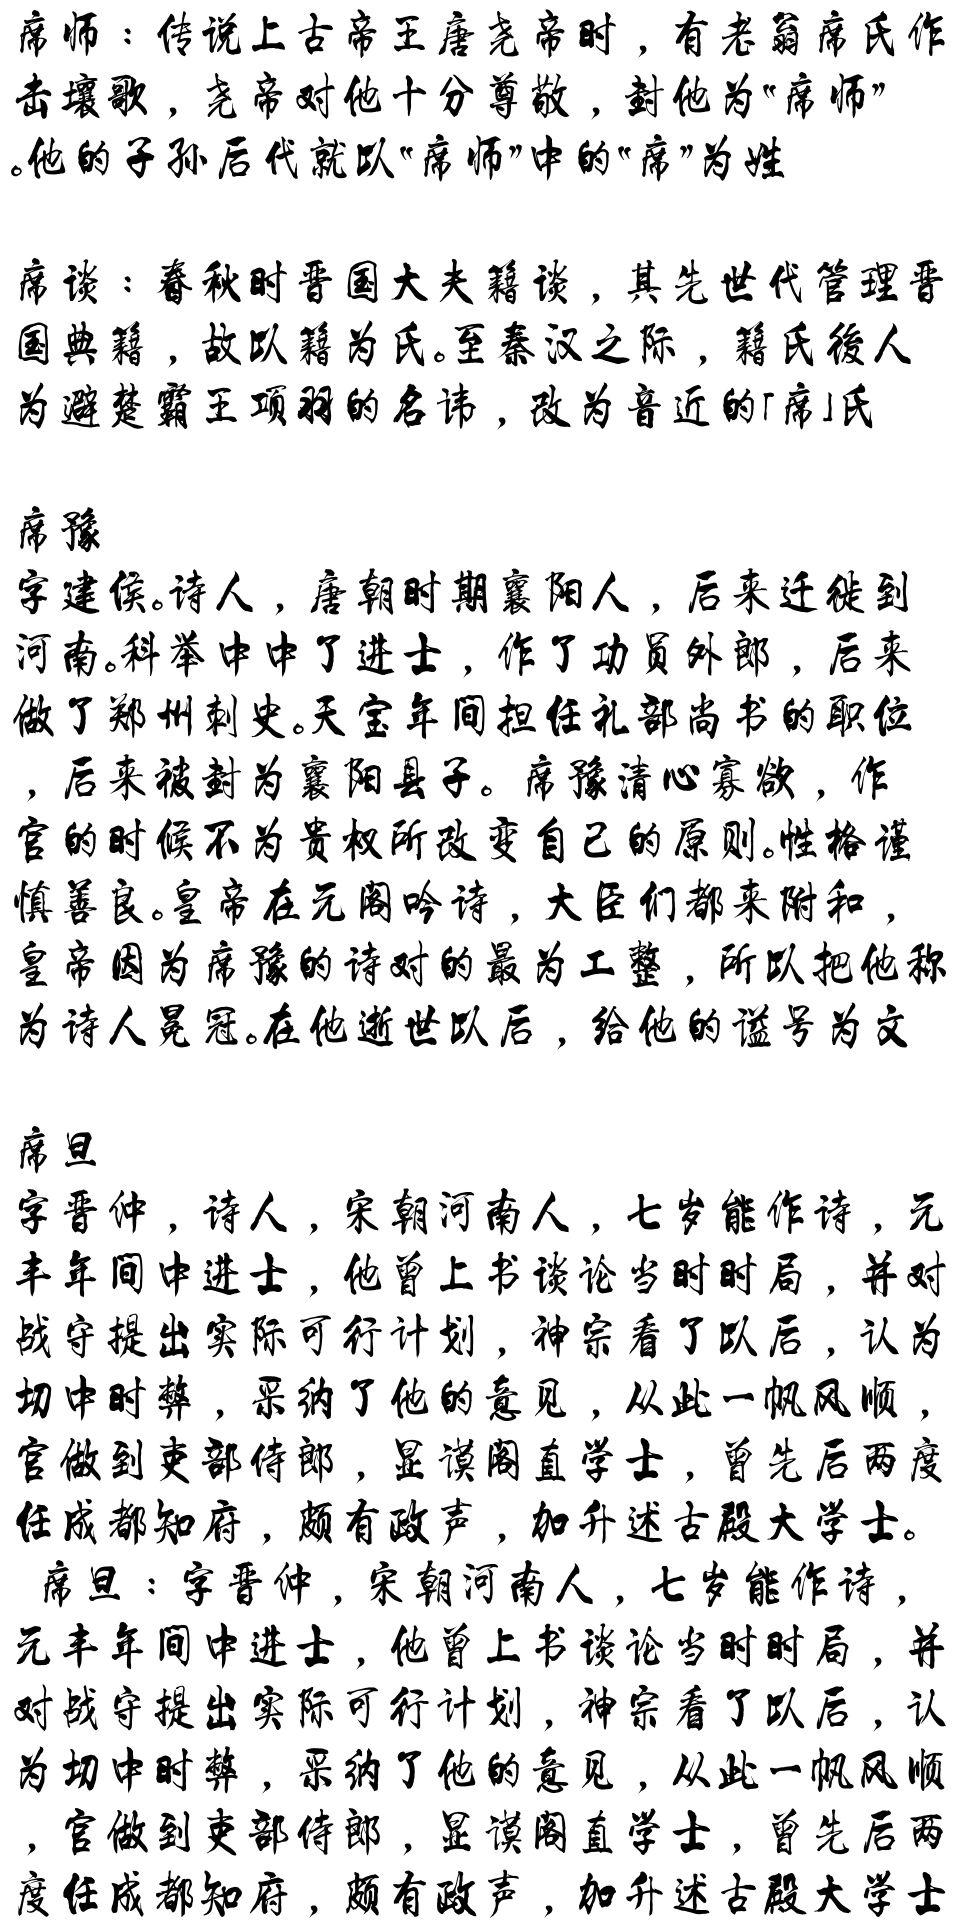 席师：传说上古帝王唐尧帝时，有老翁席氏作
击壤歌，尧帝对他十分尊敬，封他为“席师”
。他的子孙后代就以“席师”中的“席”为姓
席谈：春秋时晋国大夫籍谈，其先世代管理晋
国典籍，故以籍为氏。至秦汉之际，籍氏後人
为避楚霸王项羽的名讳，改为音近的「席」氏
席豫
字建侯。诗人，唐朝时期襄阳人，后来迁徙到
河南。科举中中了进士，作了功员外郎，后来
做了郑州刺史。天宝年间担任礼部尚书的职位
，后来被封为襄阳县子。席豫清心寡欲，作
官的时候不为贵权所改变自己的原则。性格谨
慎善良。皇帝在元阁吟诗，大臣们都来附和，
皇帝因为席豫的诗对的最为工整，所以把他称
为诗人冕冠。在他逝世以后，给他的谥号为文
席旦
字晋仲，诗人，宋朝河南人，七岁能作诗，元
丰年间中进士，他曾上书谈论当时时局，并对
战守提出实际可行计划，神宗看了以后，认为
切中时弊，采纳了他的意见，从此一帆风顺，
官做到吏部侍郎，显谟阁直学士，曾先后两度
任成都知府，颇有政声，加升述古殿大学士。
席旦：字晋仲，宋朝河南人，七岁能作诗，
元丰年间中进士，他曾上书谈论当时时局，并
对战守提出实际可行计划，神宗看了以后，认
为切中时弊，采纳了他的意见，从此一帆风顺
，官做到吏部侍郎，显谟阁直学士，曾先后两
度任成都知府，颇有政声，加升述古殿大学士